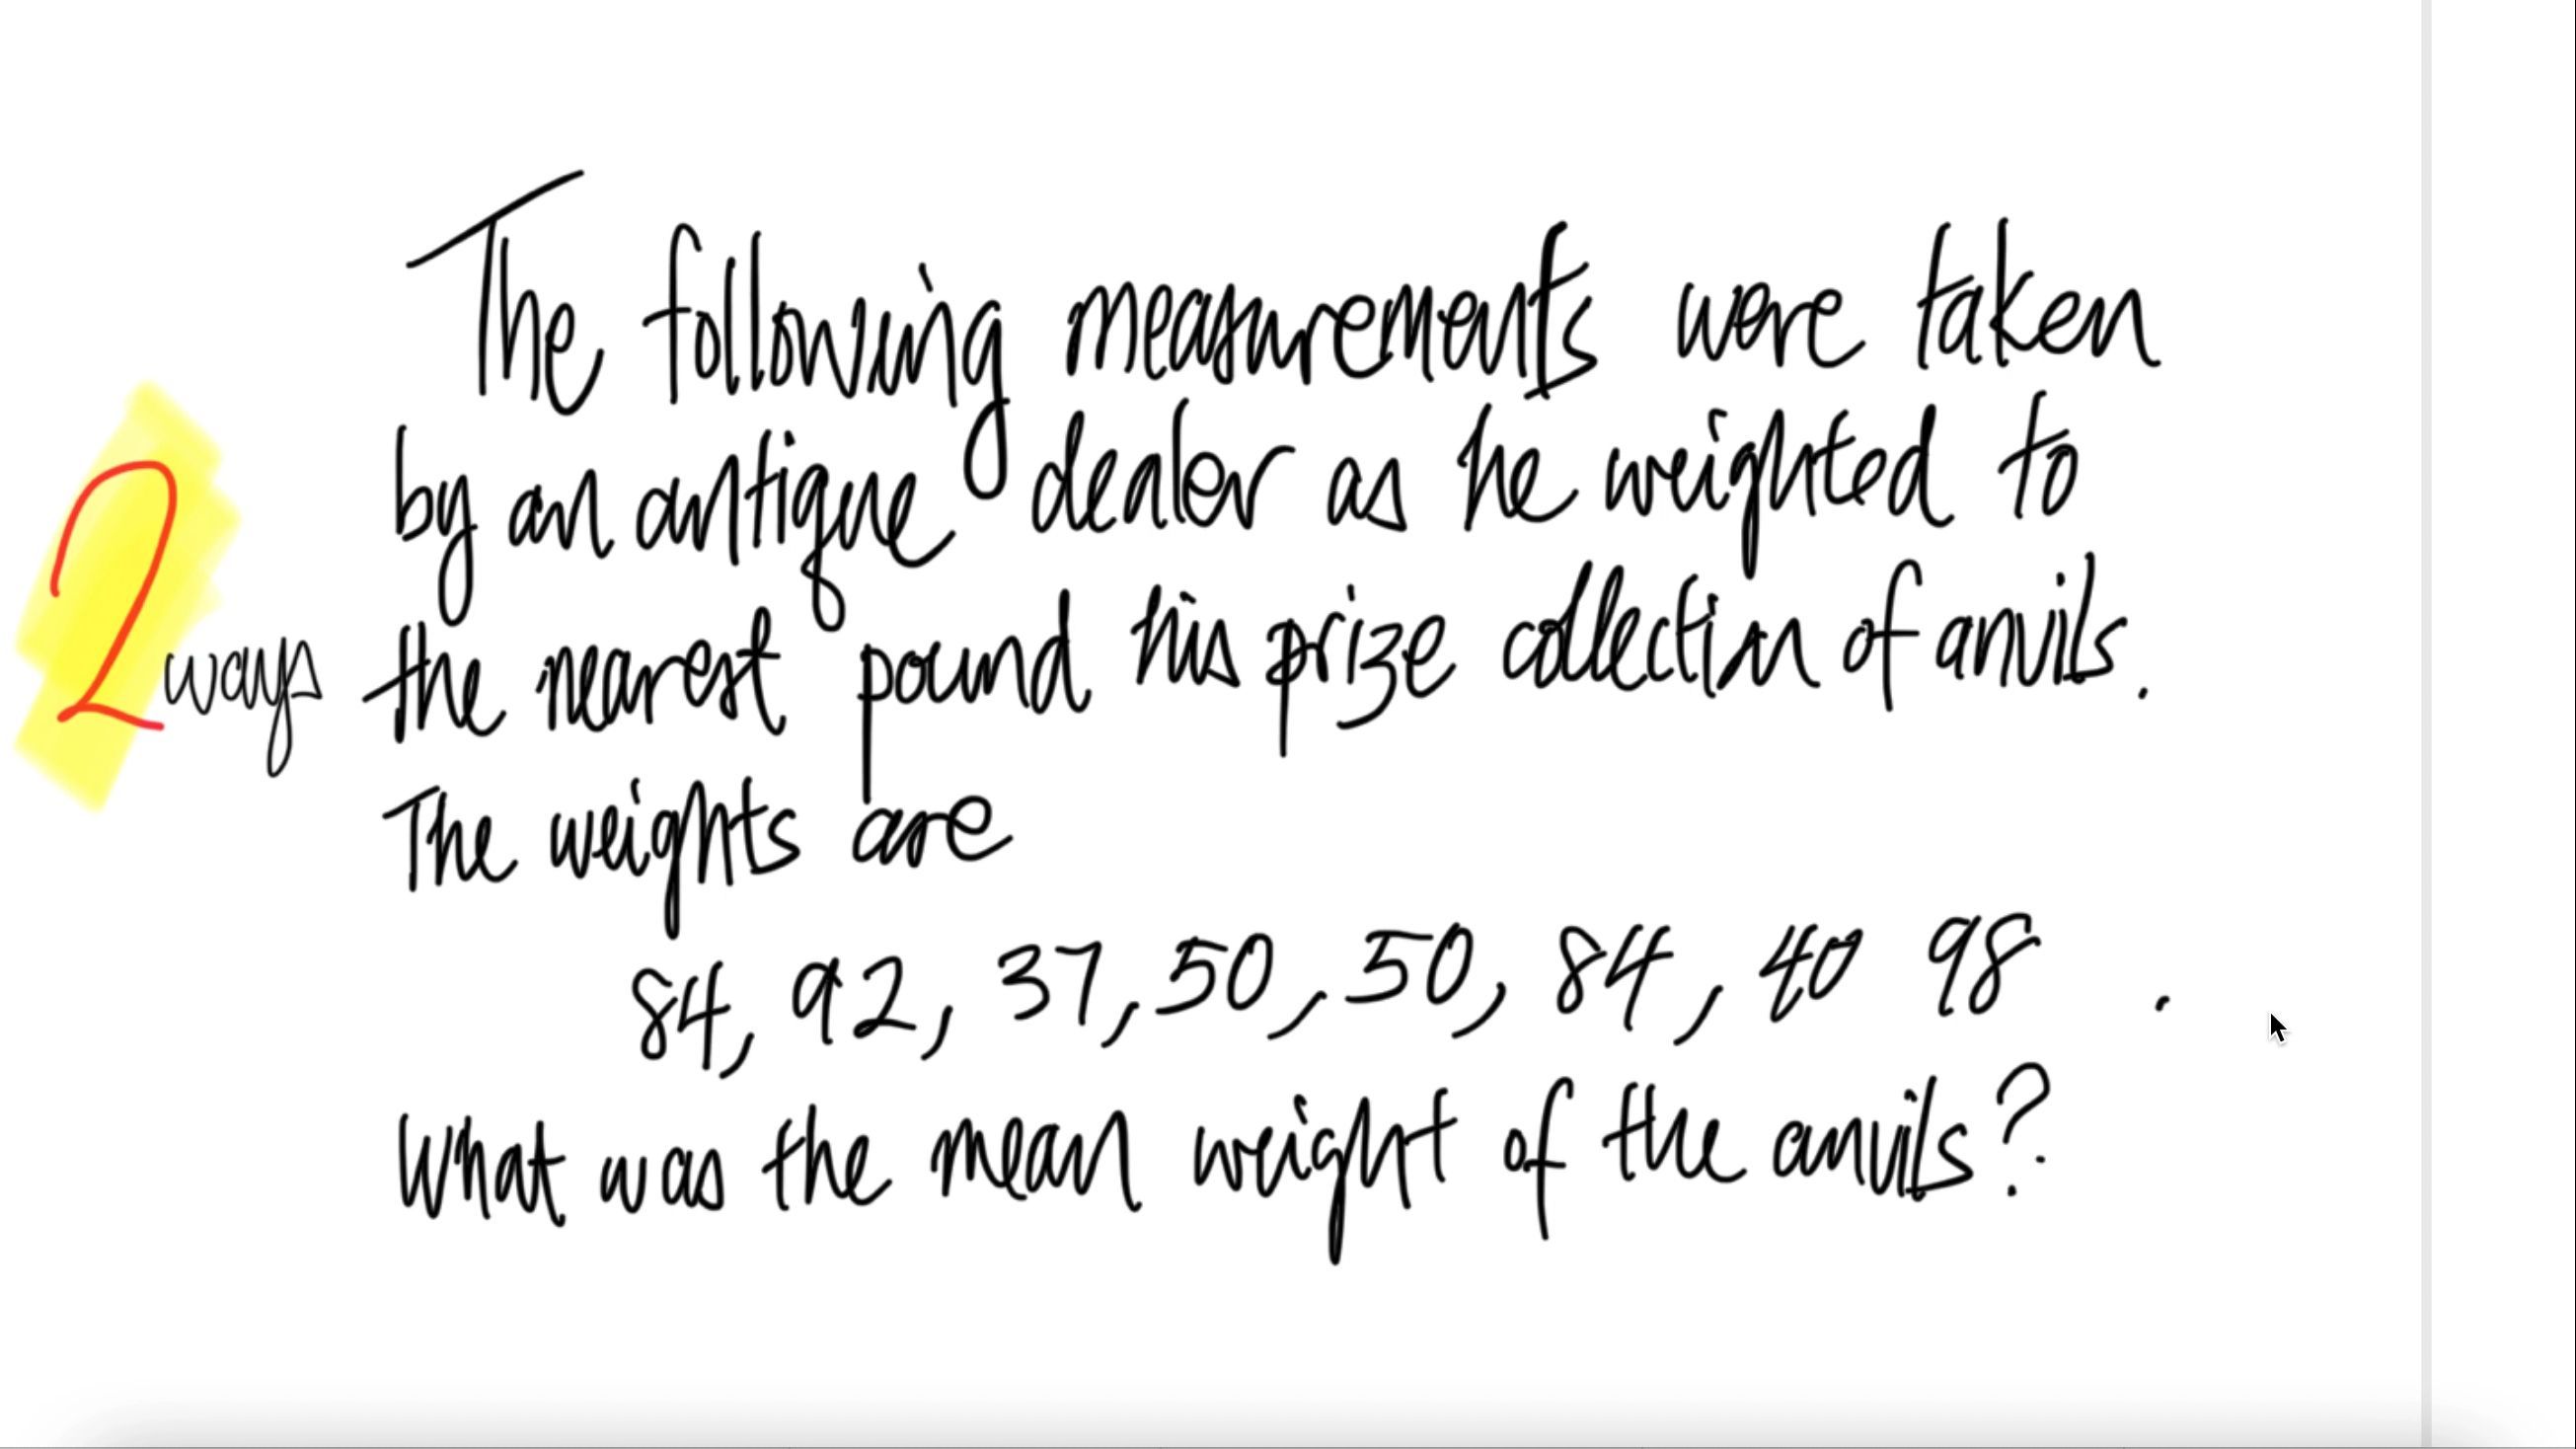 The following measurements were taken
by an antique dealer as he weighted to
2 ways the nearest pound his prize collection of anvils.
The weights are
84, 92, 37, 50, 50, 84, 40 98 .
What was the mean weight of the anvils?